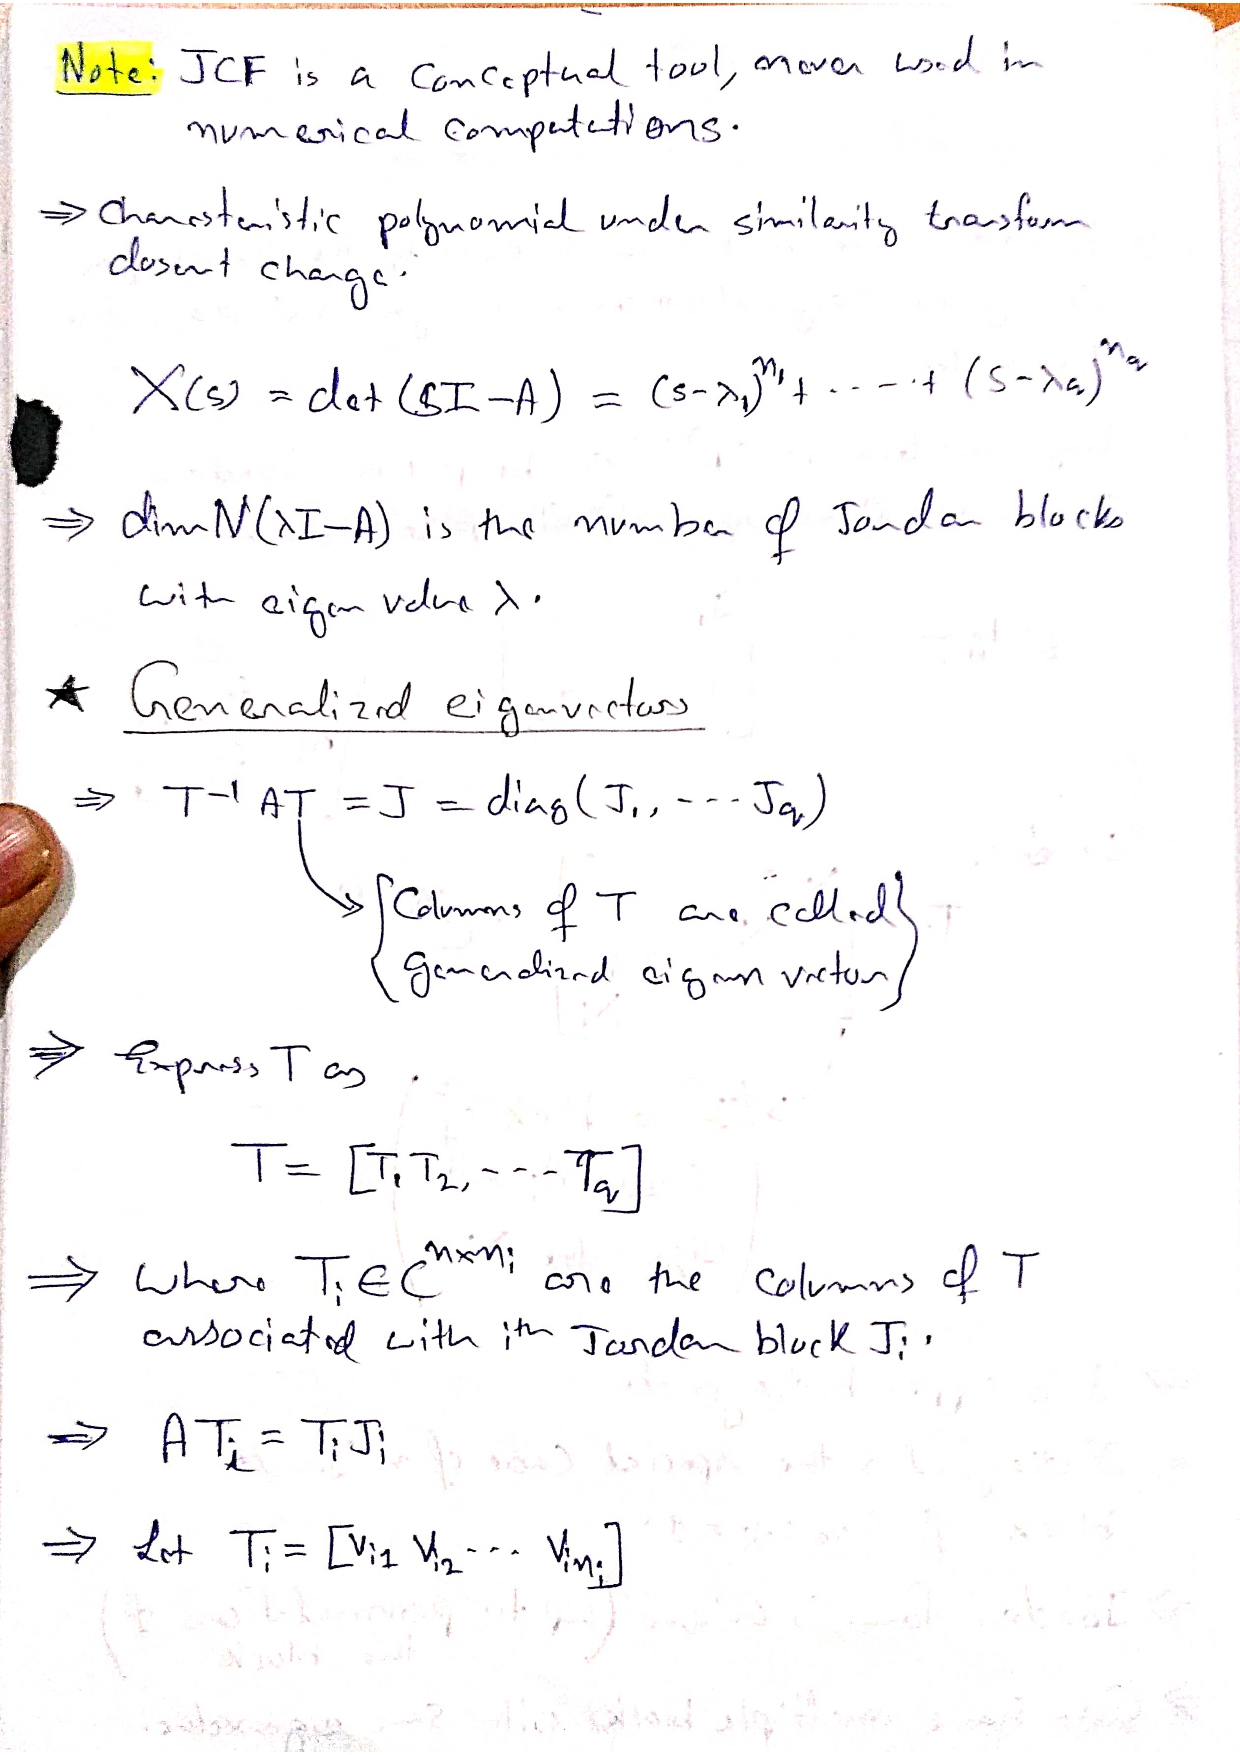 Note: JCF is a Conceptual tool, never used in
numerical computations.
⇒ Characteristic polynomial under similarity transform
dosent change.
X(s) = det (sI-A) = (s-λ₁)^n₁ + ----+ (s-λq)^nq
⇒ dim N(λI-A) is the number of Jordan blocks
with eigen value λ.
★ Generalized eigenvectors
⇒ T⁻¹ AT = J = diag(J₁, --- Jq)
{Columns of T are called
generalized eigen vectors}
⇒ Express T as
T = [T₁ T₂, ---- Tq]
⇒ where Tᵢ ∈ C^n×nᵢ are the columns of T
associated with ith Jordan block Jᵢ.
⇒ ATᵢ = TᵢJᵢ
⇒ Let Tᵢ = [Vᵢ₁ Vᵢ₂ --- Vᵢnᵢ]